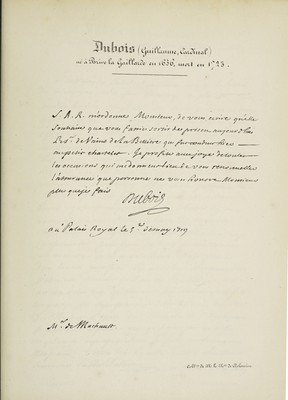 Dubois (Guillaume, Cardinal)
né à Brive la Gaillarde en 1656, mort en 1723.
S. A. R. m'ordonne Monsieur, de vous écrire qu'elle
souhaite que vous fassiez sortir de prison aujourd'huy
les Srs. de Vains de la Bruiere qui furent
au petit chatelet. Je profite avec joye de toutes
les occasions qui me donnent lieu de vous renouveller
l'assurance que personne ne vous honore Monsieur
plus que je fais
Dubois
au Palais Royal le 5e 1719
Mr. de Machault